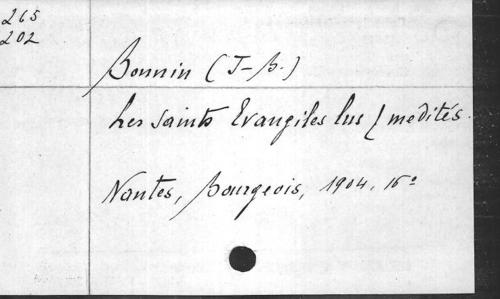 265
202
Bonnin (J-B.)
Les saints Evangiles lus & medités.
Nantes, Bourgeois, 1904, 16º